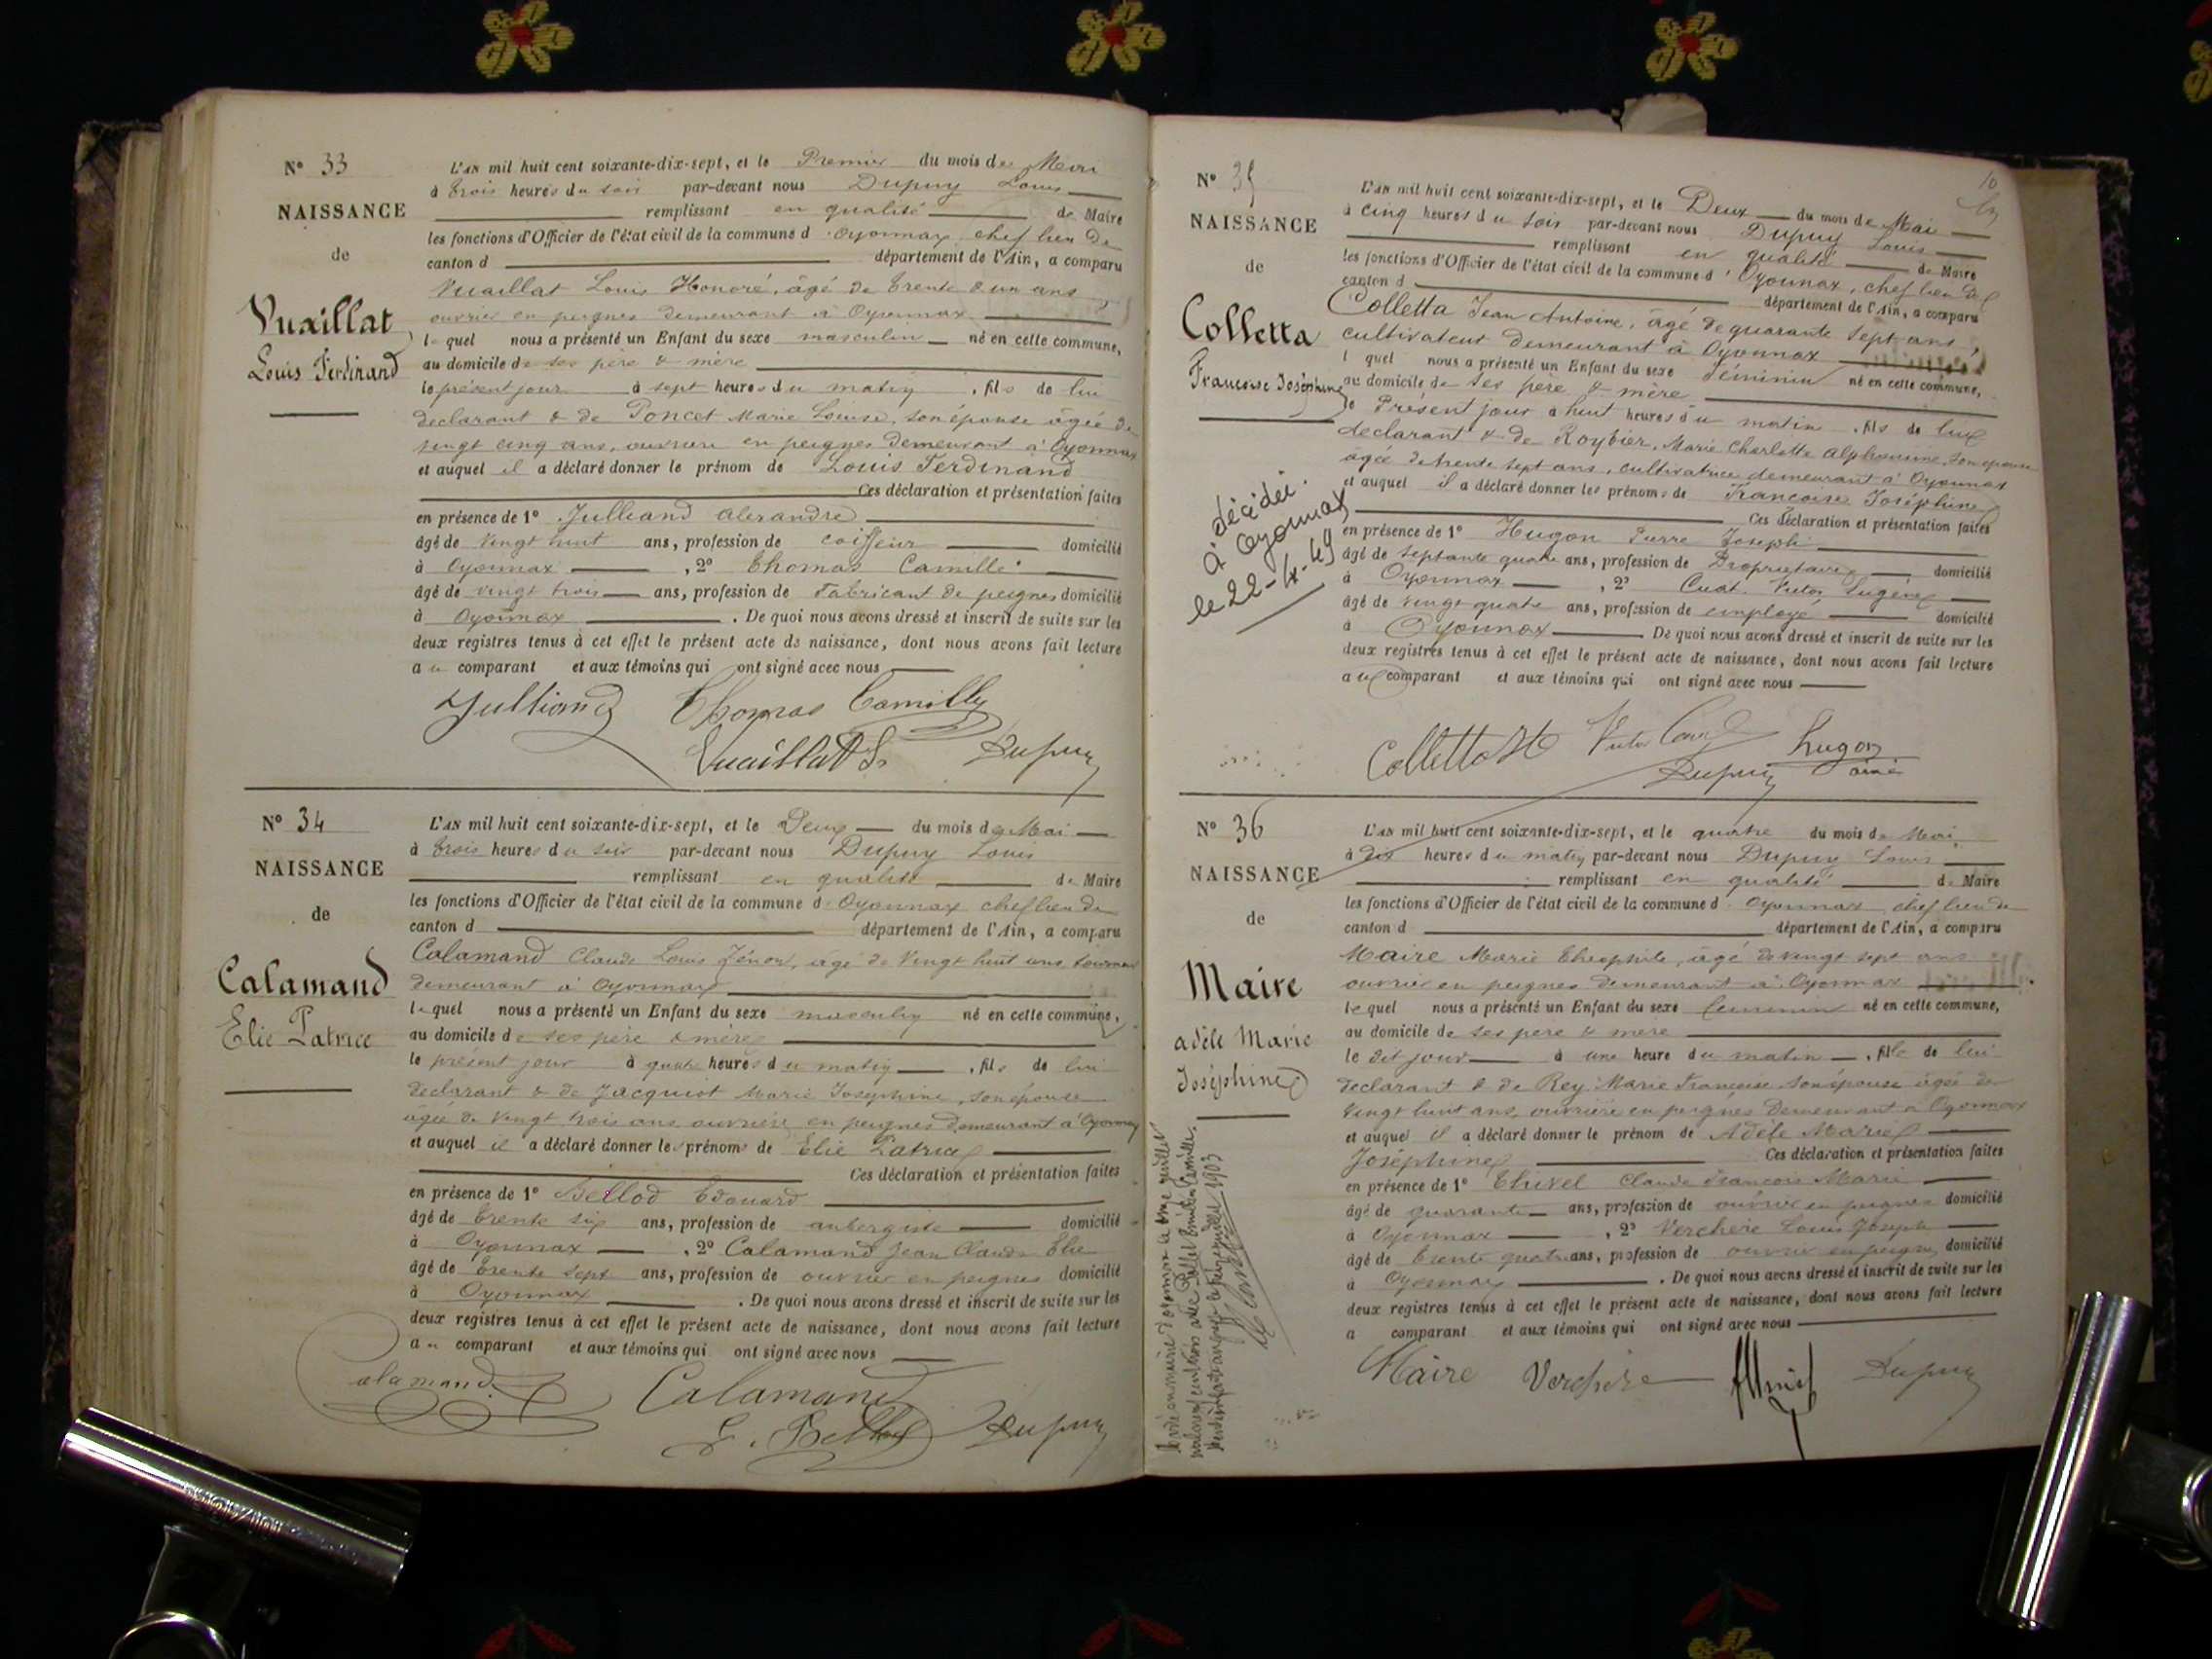 N° 33
NAISSANCE
de
Vuaillat
Louis Ferdinand
L'an mil huit cent soixante-dix-sept, et le Premier du mois de Mai
à trois heures du soir par-devant nous Dupuy Louis
remplissant en qualité de Maire
les fonctions d'Officier de l'état civil de la commune d'Oyonnax chef lieu de
canton d département de l'Ain, a comparu
Vuaillat Louis Honoré, âgé de trente & un ans
ouvrier en peignes demeurant à Oyonnax
lequel nous a présenté un Enfant du sexe masculin né en cette commune,
au domicile de ses père & mère
le présent jour à sept heures du matin, fils de lui
declarant & de Poncet Marie Louise, son épouse âgée de
vingt cinq ans, ouvrière en peignes demeurant à Oyonnax
et auquel il a déclaré donner le prénom de Louis Ferdinand
Ces déclaration et présentation faites
en présence de 1° Julliand Alexandre
âgé de vingt huit ans, profession de coiffeur domicilié
à Oyonnax, 2° Thomas Camille
âgé de vingt trois ans, profession de Fabricant de peignes domicilié
à Oyonnax. De quoi nous avons dressé et inscrit de suite sur les
deux registres tenus à cet effet le présent acte de naissance, dont nous avons fait lecture
au comparant et aux témoins qui ont signé avec nous
Julliand Thomas Camille
Vuaillat Dupuy
N° 34
NAISSANCE
de
Calamand
Elie Patrice
L'an mil huit cent soixante-dix-sept, et le Deux du mois de Mai
à trois heures du soir par-devant nous Dupuy Louis
remplissant en qualité de Maire
les fonctions d'Officier de l'état civil de la commune d'Oyonnax chef lieu de
canton d département de l'Ain, a comparu
Calamand Claude Louis Zénon, âgé de vingt huit ans, tourneur
demeurant à Oyonnax
lequel nous a présenté un Enfant du sexe masculin né en cette commune,
au domicile de ses père & mère
le présent jour à quatre heures du matin, fils de lui
declarant & de Jacquiot Marie Josephine, son épouse
âgée de vingt trois ans ouvrière en peignes demeurant à Oyonnax
et auquel il a déclaré donner les prénoms de Elie Patrice
Ces déclaration et présentation faites
en présence de 1° Bellod Edouard
âgé de trente six ans, profession de aubergiste domicilié
à Oyonnax, 2° Calamand Jean Claude Elie
âgé de trente sept ans, profession de ouvrier en peignes domicilié
à Oyonnax. De quoi nous avons dressé et inscrit de suite sur les
deux registres tenus à cet effet le présent acte de naissance, dont nous avons fait lecture
au comparant et aux témoins qui ont signé avec nous
Calamand Calamand
E. Bellod Dupuy
10
N° 35
NAISSANCE
de
Colletta
Francoise Joséphine
décédée
à Oyonnax
le 22-4-49
L'an mil huit cent soixante-dix-sept, et le Deux du mois de Mai
à cinq heures du soir par-devant nous Dupuy Louis
remplissant en qualité de Maire
les fonctions d'Officier de l'état civil de la commune d'Oyonnax, chef lieu de
canton d département de l'Ain, a comparu
Colletta Jean Antoine, âgé de quarante sept ans,
cultivateur demeurant à Oyonnax
lequel nous a présenté un Enfant du sexe féminin né en cette commune,
au domicile de ses père & mère
le Présent jour à huit heures du matin, fils de lui
declarant & de Roybier, Marie Charlotte Alphonsine, son épouse
âgée de trente sept ans, cultivatrice demeurant à Oyonnax
et auquel il a déclaré donner les prénoms de Francoise Joséphine
Ces déclaration et présentation faites
en présence de 1° Hugon Pierre Joseph
âgé de septante quatre ans, profession de Propriétaire domicilié
à Oyonnax, 2° Victor Eugène
âgé de vingt quatre ans, profession de employé domicilié
à Oyonnax. De quoi nous avons dressé et inscrit de suite sur les
deux registres tenus à cet effet le présent acte de naissance, dont nous avons fait lecture
au comparant et aux témoins qui ont signé avec nous
Colletta Victor Hugon
Dupuy aîné
N° 36
NAISSANCE
de
Maire
adèle Marie
Joséphine
L'an mil huit cent soixante-dix-sept, et le quatre du mois de Mai
à dix heures du matin par-devant nous Dupuy Louis
remplissant en qualité de Maire
les fonctions d'Officier de l'état civil de la commune d'Oyonnax chef lieu de
canton d département de l'Ain, a comparu
Maire Marie Théophile, âgé de vingt sept ans
ouvrier en peignes demeurant à Oyonnax
lequel nous a présenté un Enfant du sexe féminin né en cette commune,
au domicile de ses père & mère
le dit jour à une heure du matin, fille de lui
declarant & de Rey Marie Françoise son épouse âgée de
vingt huit ans, ouvrière en peignes demeurant à Oyonnax
et auquel il a déclaré donner le prénom de Adèle Marie
Joséphine Ces déclaration et présentation faites
en présence de 1° Claude François Marie
âgé de quarante ans, profession de ouvrier en peignes domicilié
à Oyonnax, 2° Verchère Louis Joseph
âgé de trente quatre ans, profession de ouvrier en peignes domicilié
à Oyonnax. De quoi nous avons dressé et inscrit de suite sur les
deux registres tenus à cet effet le présent acte de naissance, dont nous avons fait lecture
a comparant et aux témoins qui ont signé avec nous
Maire Verchère Dupuy